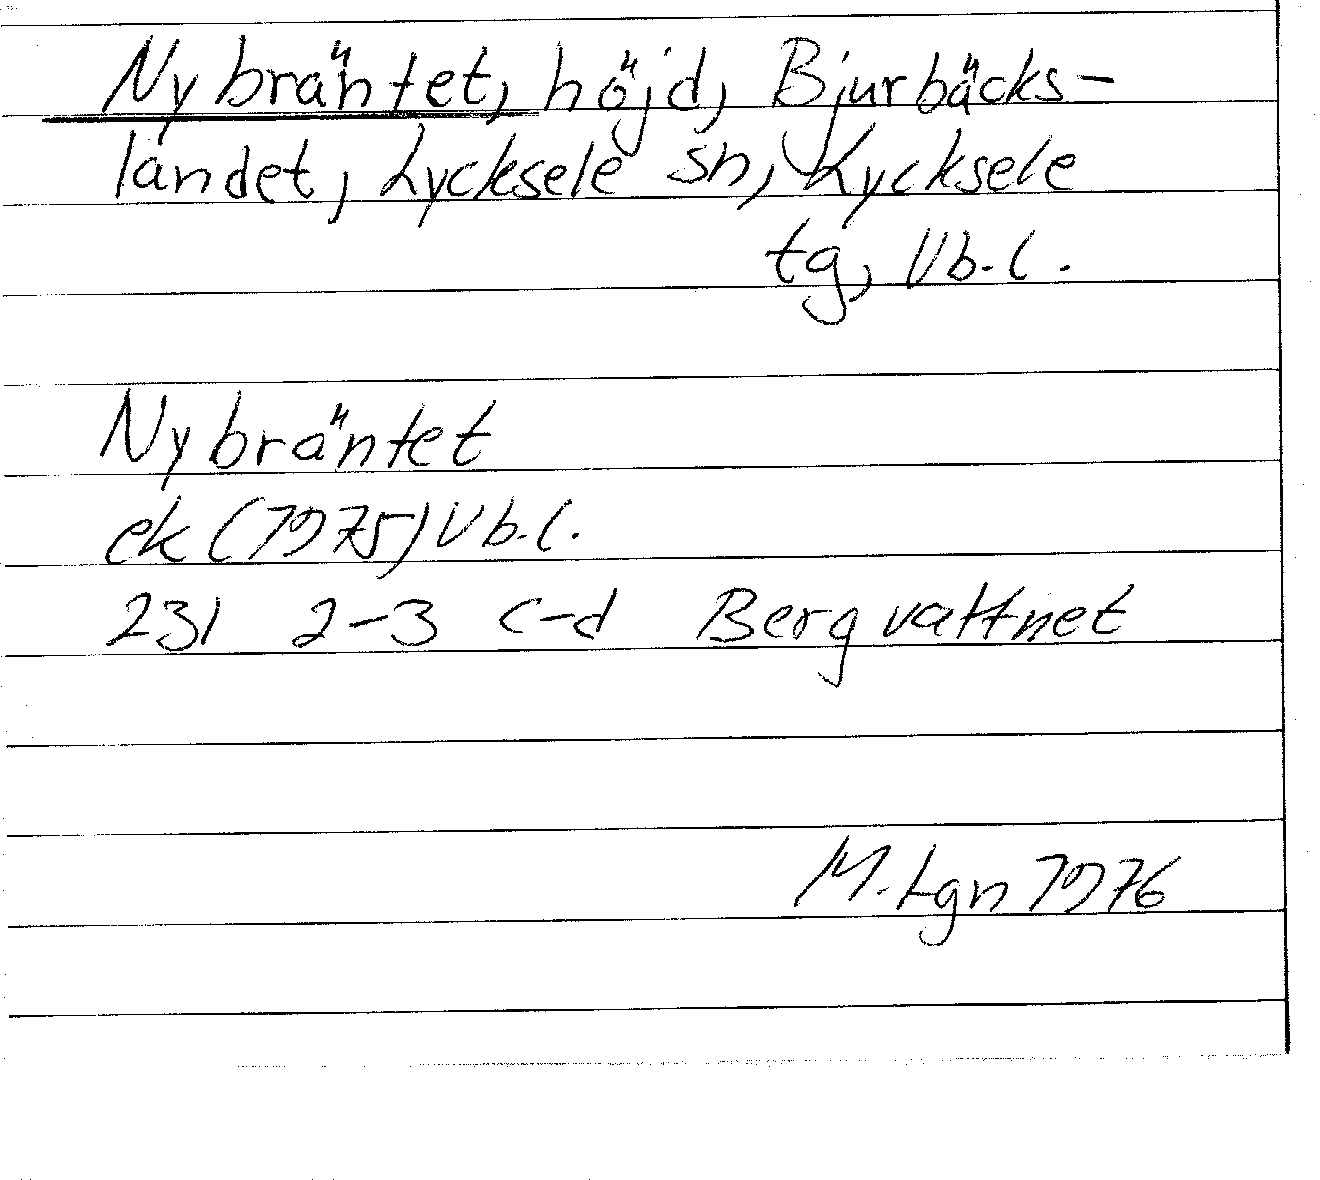 Nybräntet, höjd, Bjurbäcks-
landet, Lycksele sn, Lycksele
tg, Vb.l.
Nybräntet
ek (1975) Vb.l.
23I 2-3 c-d Bergvattnet
M. Lgn 1976